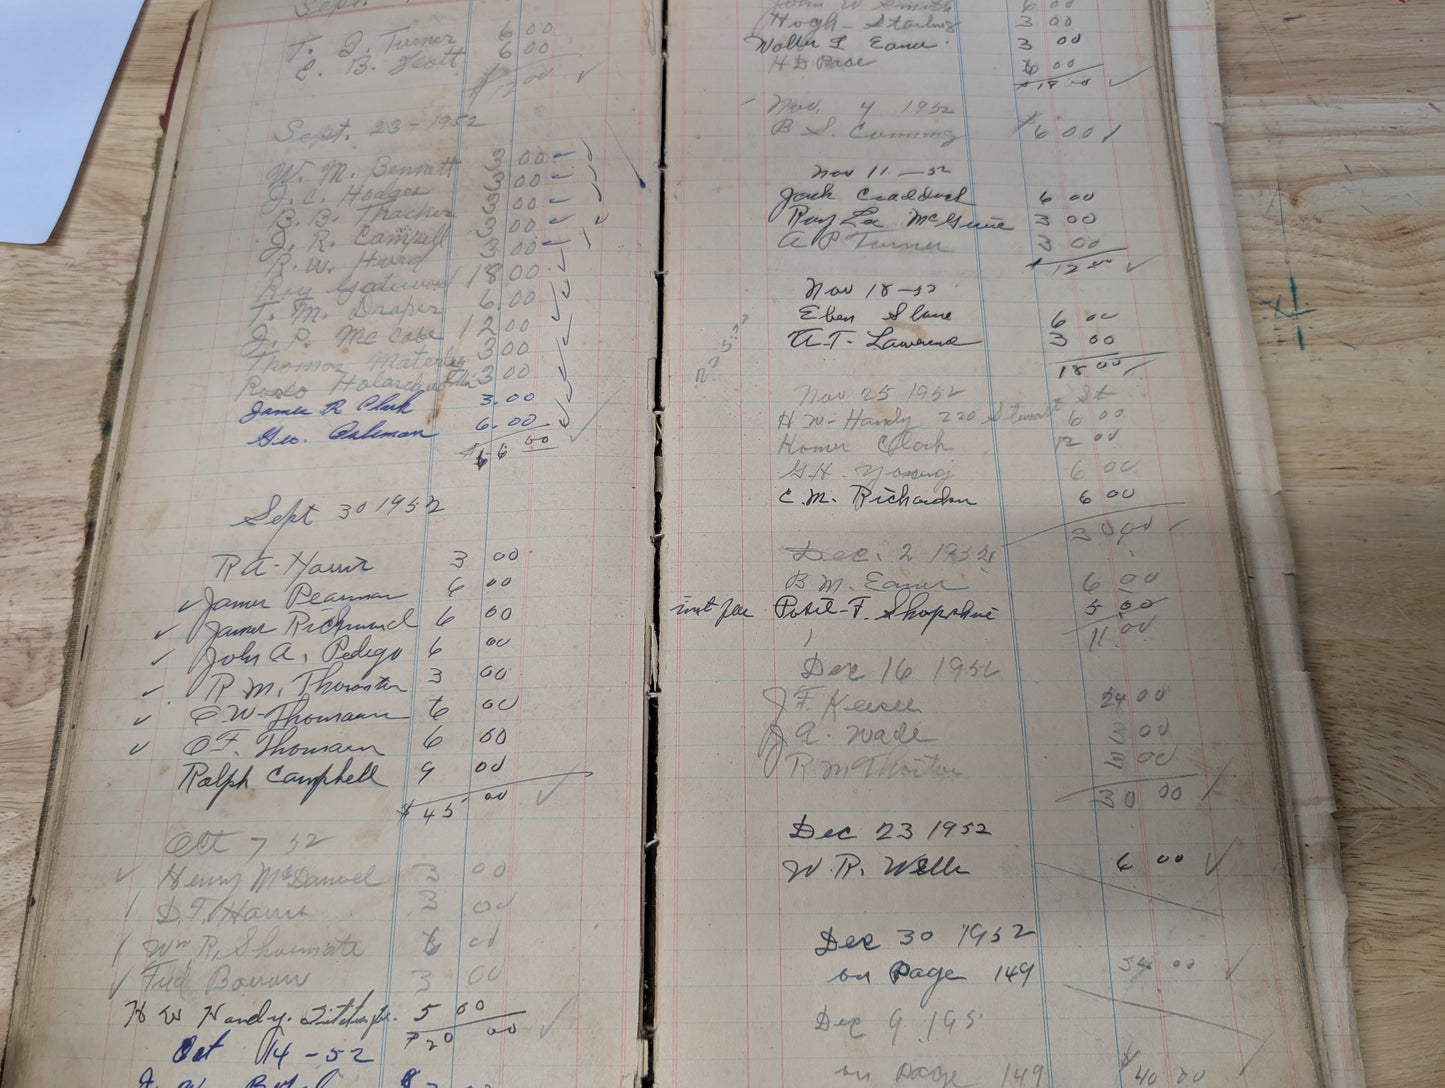 Sept.
T. J. Turner 6 00
E. B. Scott 6 00
$12 00 ✓
Sept. 23-1952
W. M. Bennett 3 00
J. C. Hodges 3 00
B. B. Thacker 3 00
J. R. Campell 3 00
R. W. Hurd 3 00
Roy Gatewood 18 00
T. M. Draper 6 00
J. P. McCabe 12 00
Thomas 3 00
3 00
James R Clark 3.00
Geo. 6.00
$66 00
Sept 30 1952
R A Harris 3 00
✓ James Pearman 6 00
✓ James Richmond 6 00
✓ John A. Pedigo 6 00
✓ R. M. Thornton 3 00
✓ C. W. Thomasen 6 00
✓ C F. Thomasen 6 00
Ralph Campbell 9 00
$45 00 ✓
Oct 7 52
✓ Henry McDaniel 3 00
D. F. Harris 3 00
Wm R. Shoemate 6 00
✓ Fred Bowan 3 00
H W Handy. 5 00
$20 00 ✓
Oct 14-52
J. W.
John W Smith 6 00
Hugh Starling 3 00
Walter L Eanes 3 00
H D Pace 6 00
$18 00 ✓
Nov. 4 1952
B. S. $6 00
Nov 11-52
Jack Craddock 6 00
Ray Lee McGuire 3 00
A P Turner 3 00
$12 00 ✓
Nov 18-52
Eben Slone 6 00
A. T. Lawrence 3 00
18 00
Nov 25 1952 St
H W- Handy 220 Stuart 6 00
Homer Clark 12 00
G H. Young 6 00
C. M. Richardson 6 00
30 00
Dec. 2 1952
B M. Eanes 6 00
int fee Posie F. Shopshire 5 00
11.00
Dec 16 1952
J F. Keesee 24 00
J A. Wade 3 00
R M Thornton 3 00
30 00
Dec 23 1952
W. R. Wells 6 00 ✓
Dec 30 1952
on page 149 54 00 ✓
Dec 9 195
on page 149 $40 00